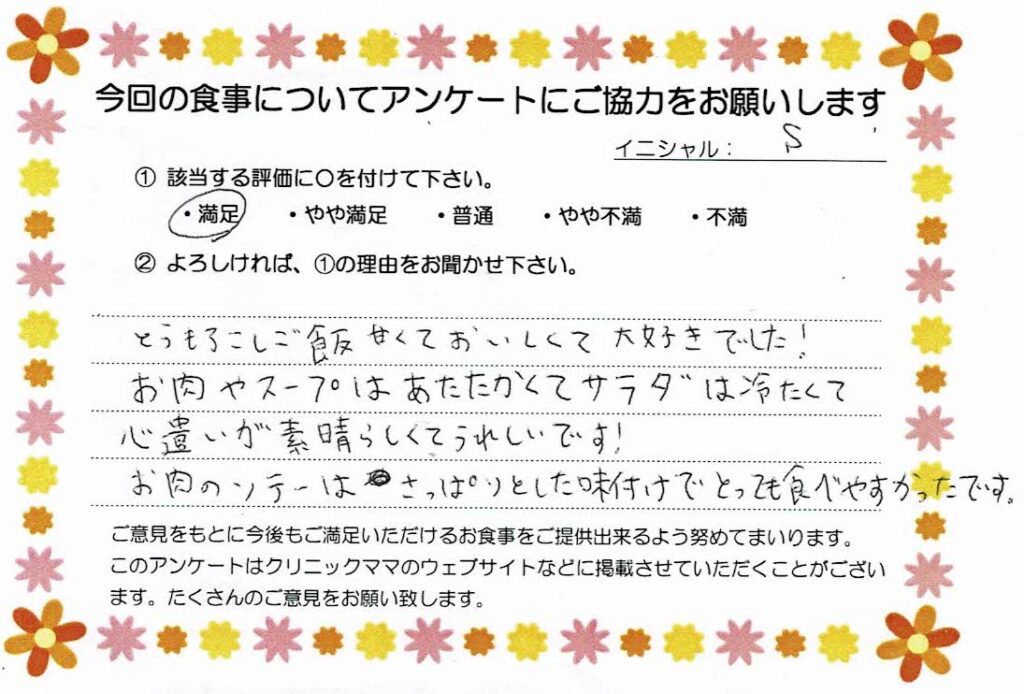 今回の食事についてアンケートにご協力をお願いします
イニシャル： S
① 該当する評価に○を付けて下さい。
・満足 ・やや満足 ・普通 ・やや不満 ・不満
② よろしければ、①の理由をお聞かせ下さい。
とうもろこしご飯 甘くておいしくて 大好きでした！
お肉やスープはあたたかくてサラダは冷たくて
心遣いが素晴らしくてうれしいです！
お肉のソテーは さっぱりとした味付けでとっても食べやすかったです。
ご意見をもとに今後もご満足いただけるお食事をご提供出来るよう努めてまいります。
このアンケートはクリニックママのウェブサイトなどに掲載させていただくことがござい
ます。たくさんのご意見をお願い致します。